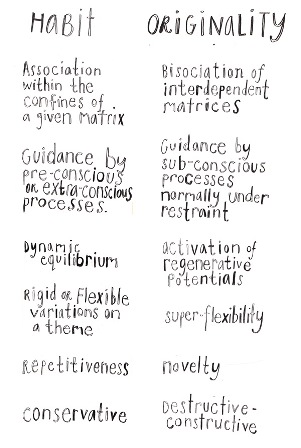 Habit
ORIGINALITY
Association
within the
confines of
a given matrix
Bisociation of
interdependent
matrices
Guidance by
pre-conscious
or extra-conscious
processes.
Guidance by
sub-conscious
processes
normally under
restraint
Dynamic
equilibrium
activation of
regenerative
potentials
Rigid or Flexible
variations on
a theme
super-flexibility
Repetitiveness
novelty
conservative
Destructive-
constructive